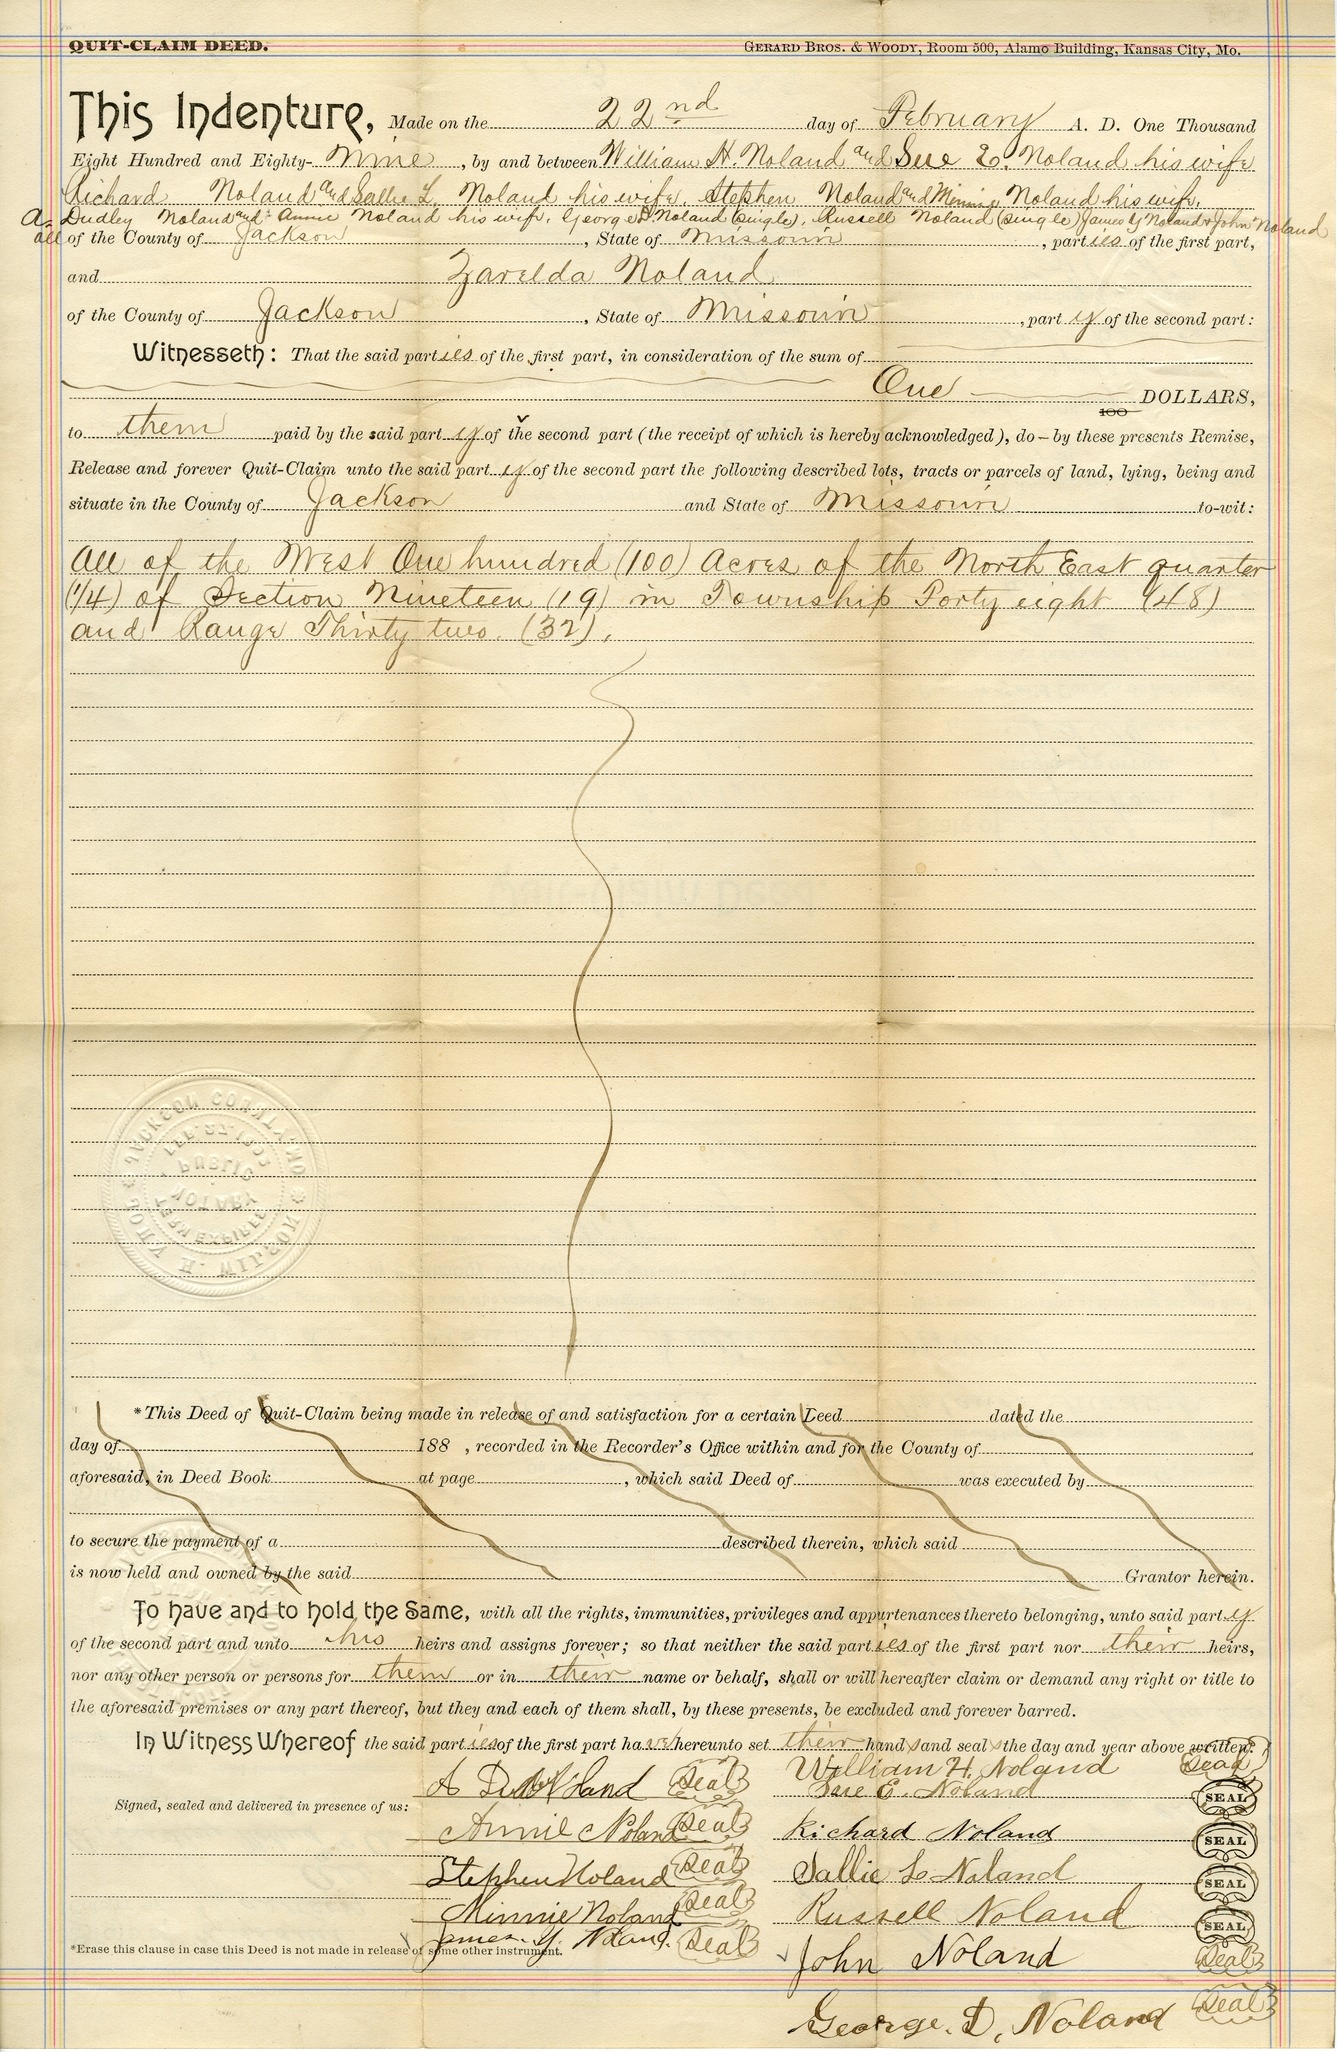 QUIT-CLAIM DEED. GERARD BROS. & WOODY, Room 500, Alamo Building, Kansas City, Mo.
This Indenture, Made on the 22nd day of February A. D. One Thousand
Eight Hundred and Eighty-Nine, by and between William H. Noland and Sue E. Noland his wife
Richard Noland and Sallie L. Noland his wife, Stephen Noland and Minnie Noland his wife,
A. Dudley Noland and Annie Noland his wife, George D. Noland (single), Russell Noland (single) James Y Noland & John Noland
all of the County of Jackson, State of Missouri, parties of the first part,
and Zarelda Noland
of the County of Jackson, State of Missouri, party of the second part:
Witnesseth: That the said parties of the first part, in consideration of the sum of
One 100 DOLLARS,
to them paid by the said party of the second part (the receipt of which is hereby acknowledged), do – by these presents Remise,
Release and forever Quit-Claim unto the said party of the second part the following described lots, tracts or parcels of land, lying, being and
situate in the County of Jackson and State of Missouri to-wit:
All of the West One hundred (100) Acres of the North East quarter
(1/4) of Section Nineteen (19) in Township Forty eight (48)
and Range Thirty two. (32).
JACKSON COUNTY, MO.
NOTARY PUBLIC
TERM EXPIRES
JOHN H. WILSON
*This Deed of Quit-Claim being made in release of and satisfaction for a certain Deed dated the
day of 188 , recorded in the Recorder's Office within and for the County of
aforesaid, in Deed Book at page , which said Deed of was executed by
to secure the payment of a described therein, which said
is now held and owned by the said Grantor herein.
To have and to hold the Same, with all the rights, immunities, privileges and appurtenances thereto belonging, unto said party
of the second part and unto his heirs and assigns forever; so that neither the said parties of the first part nor their heirs,
nor any other person or persons for them or in their name or behalf, shall or will hereafter claim or demand any right or title to
the aforesaid premises or any part thereof, but they and each of them shall, by these presents, be excluded and forever barred.
In Witness Whereof the said parties of the first part have hereunto set their hands and seals the day and year above written.
William H. Noland Seal
A Dud Noland Seal Sue E. Noland SEAL
Signed, sealed and delivered in presence of us:
Annie Noland Seal Richard Noland SEAL
Stephen Noland Seal Sallie L. Noland SEAL
Minnie Noland Seal Russell Noland SEAL
James. Y. Noland. Seal John Noland Seal
*Erase this clause in case this Deed is not made in release of some other instrument.
George. D, Noland Seal